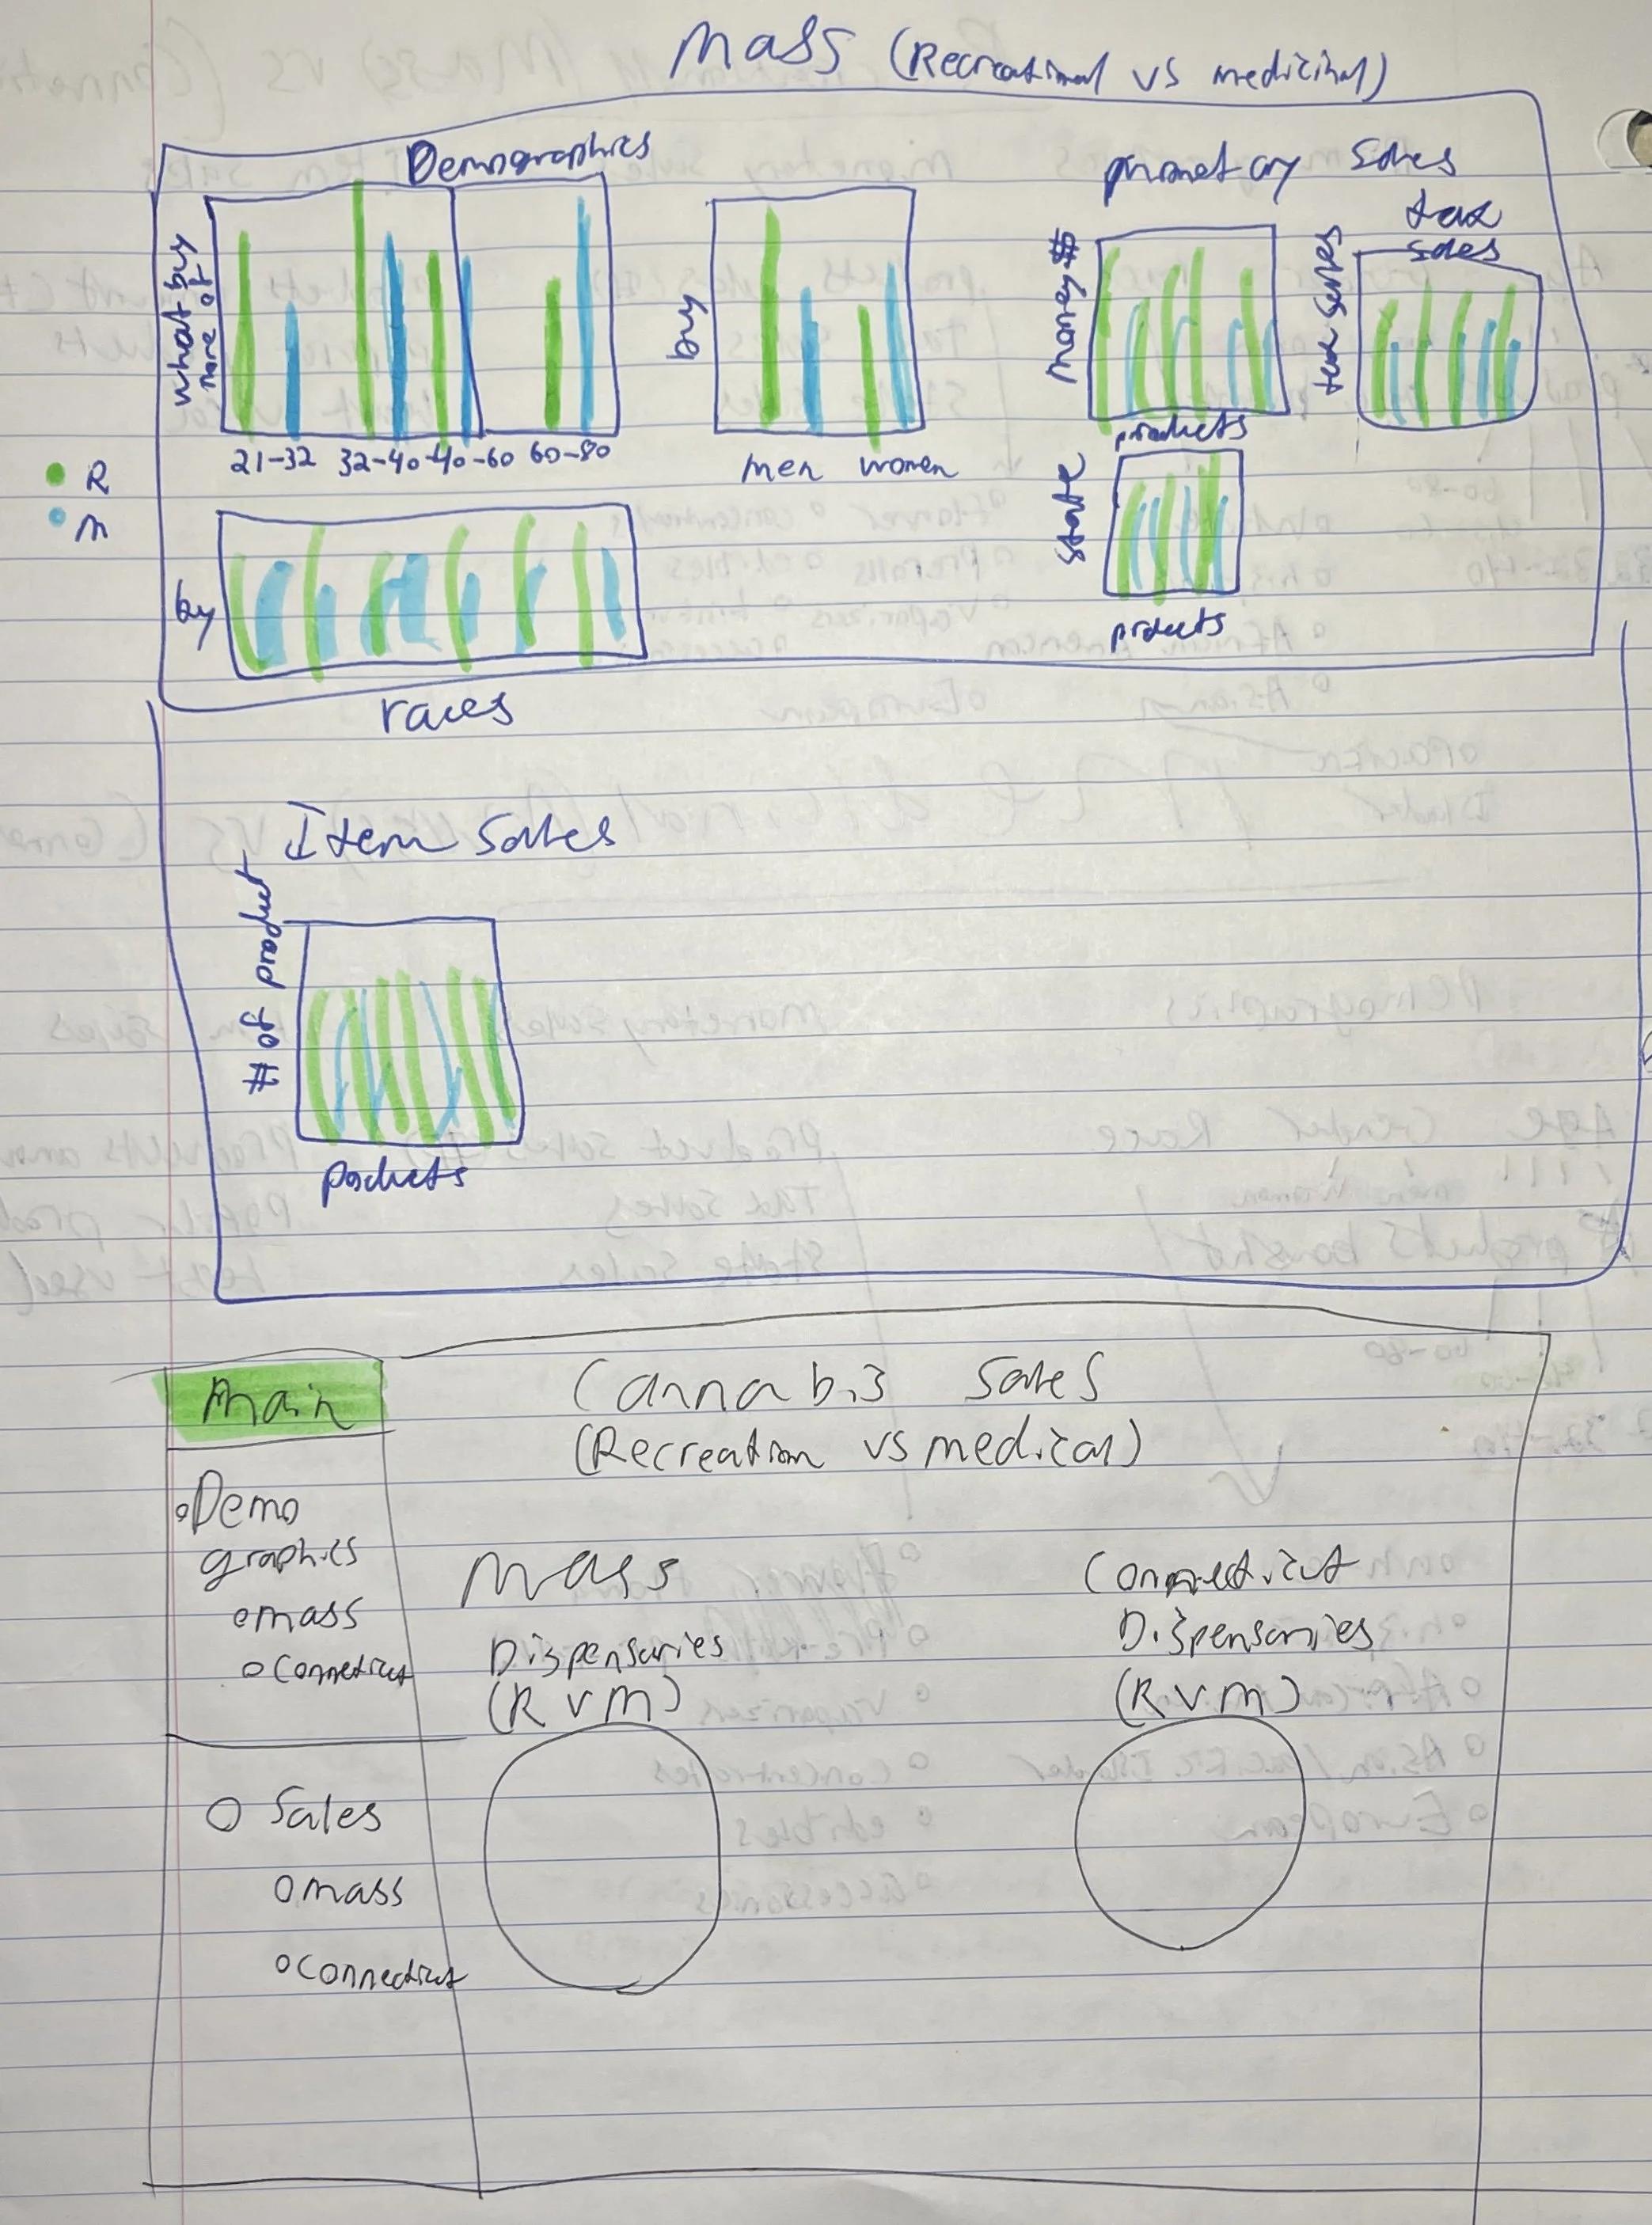 Mass (Recreational vs medicinal)
Demographics
what buy
more of
21-32 32-40 40-60 60-80
R
M
buy
men women
Money $
Sales
products
tax
sales
tax series
state
prducts
buy
races
Item Sales
# of product
Main
Cannabis Sales
(Recreation vs medical)
Demo
graphics
mass
Connecticut
Mass
Dispensaries
(R v m)
Connecticut
Dispensaries
(R v m)
Sales
mass
Connecticut